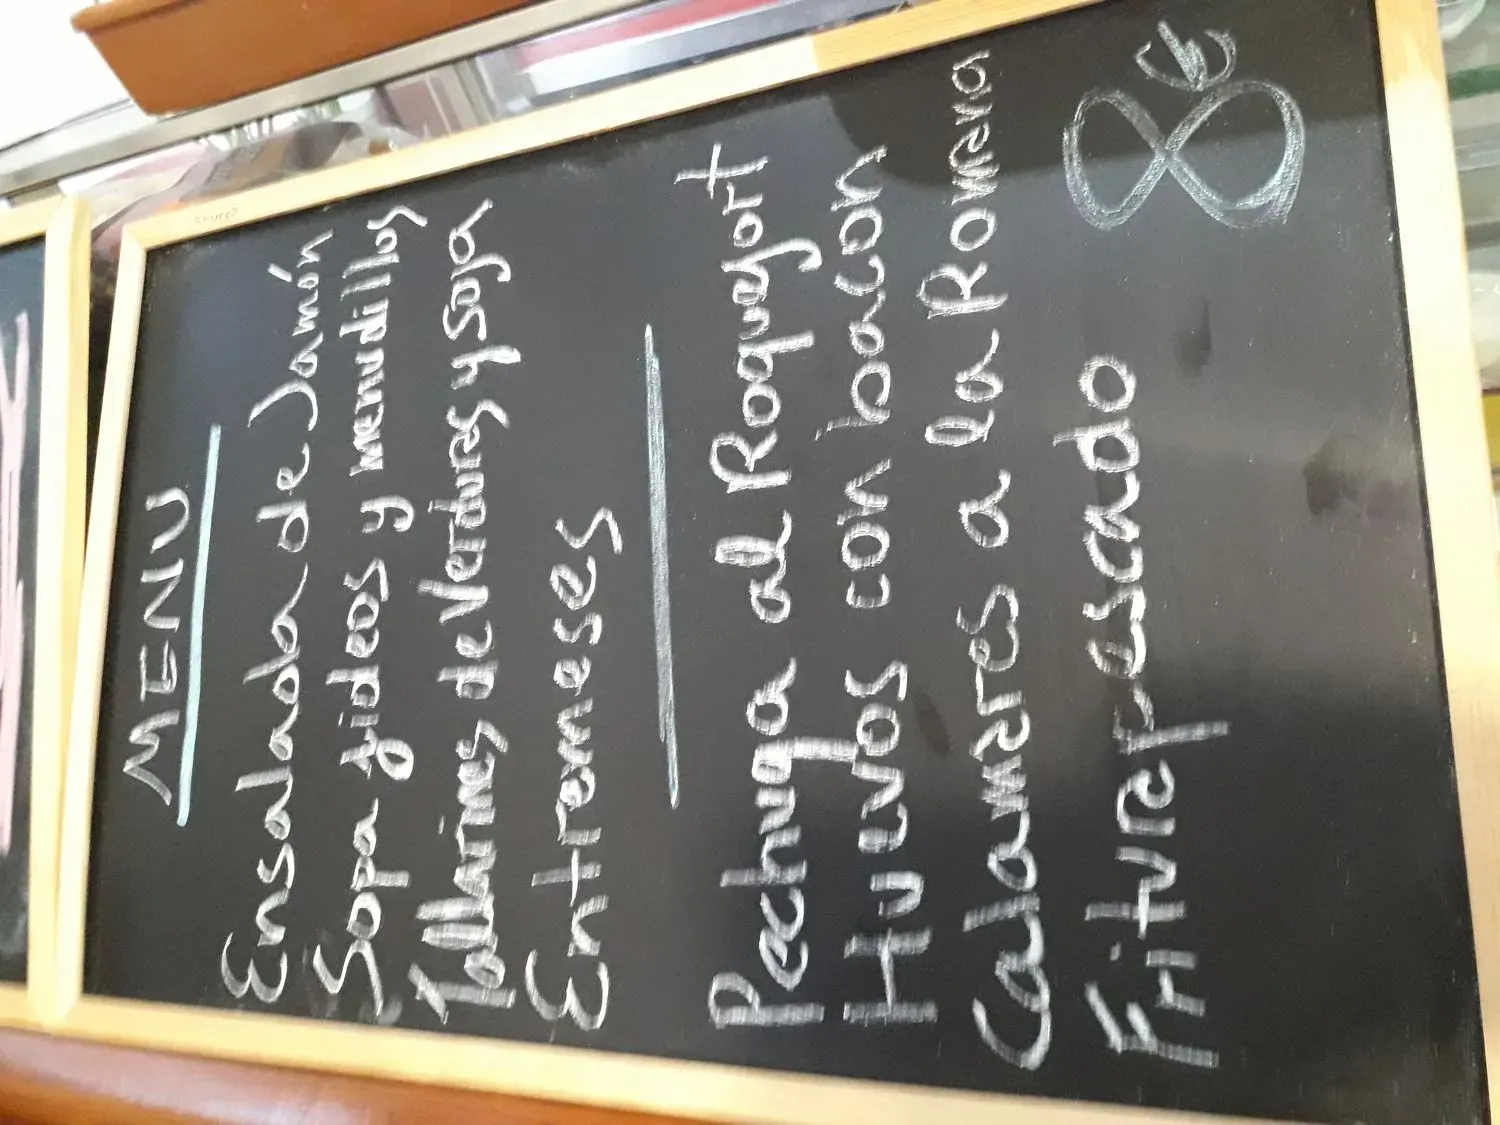 MENU
Ensalada de Jamón
Sopa fideos y menudillos
Tallarines de Verduras y soja
Entremeses
Pechuga al Roquefort
Huevos con bacon
Calamares a la Romana
Friturpescado
8€